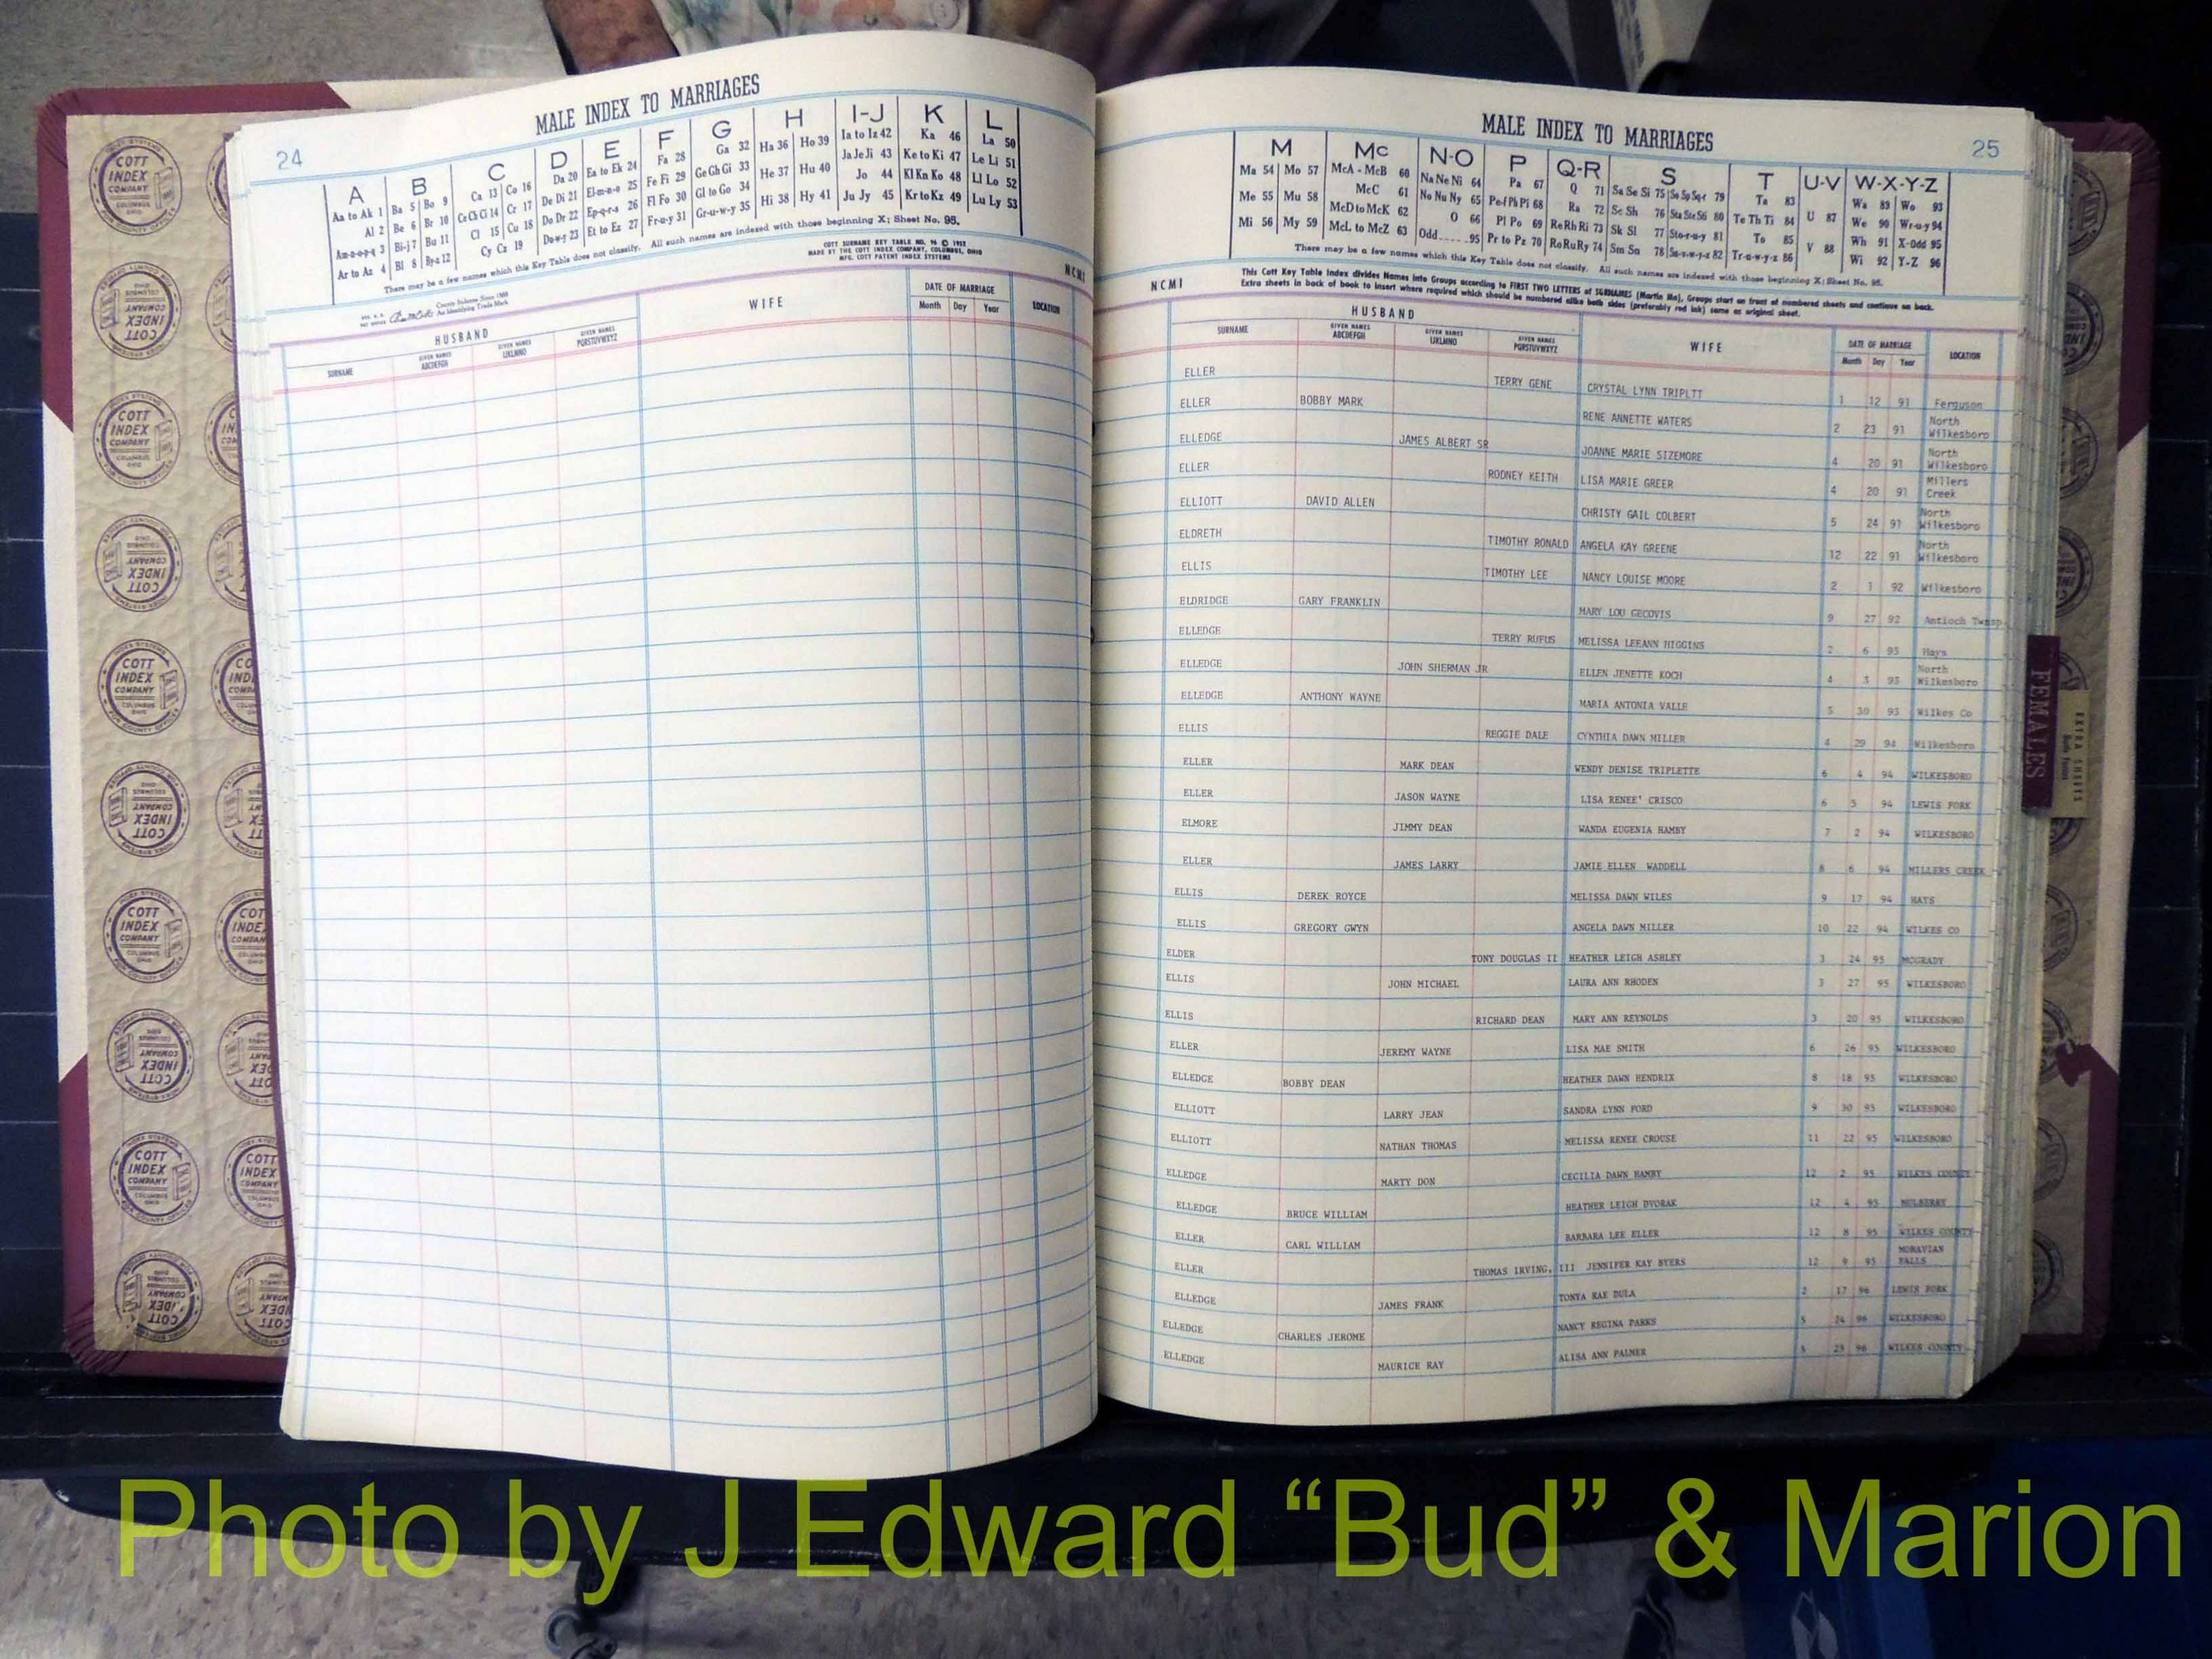 MALE INDEX TO MARRIAGES
24
A B C D E F G H I-J K L
Aa to Ak 1 Ba 5 Bo 9 Ca 13 Co 16 Da 20 Ea to Ek 24 Fa 28 Ga 32 Ha 36 Ho 39 Ia to Iz 42 Ka 46 La 50
Al 2 Be 6 Br 10 Ce Ch Ci 14 Cr 17 De Di 21 El-m-n-o 25 Fe Fi 29 Ge Gh Gi 33 He 37 Hu 40 Ja Je Ji 43 Ke to Ki 47 Le Li 51
Am-n-o-p-q 3 Bi-j 7 Bu 11 Cl 15 Cu 18 Do Dr 22 Ep-q-r-s 26 Fl Fo 30 Gl to Go 34 Hi 38 Hy 41 Jo 44 Kl Kn Ko 48 Ll Lo 52
Ar to Az 4 Bl 8 By-z 12 Cy Cz 19 Du-w-y 23 Et to Ez 27 Fr-u-y 31 Gr-u-w-y 35 Ju Jy 45 Kr to Kz 49 Lu Ly 53
There may be a few names which this Key Table does not classify. All such names are indexed with those beginning X; Sheet No. 95.
COTT SURNAME KEY TABLE NO. 96 © 1952
MADE BY THE COTT INDEX COMPANY, COLUMBUS, OHIO
MFG. COTT PATENT INDEX SYSTEMS
County Indexes Since 1888
An Identifying Trade Mark
NCMI
HUSBAND WIFE DATE OF MARRIAGE LOCATION
SURNAME GIVEN NAMES ABCDEFGH GIVEN NAMES IJKLMNO GIVEN NAMES PQRSTUVWXYZ Month Day Year
MALE INDEX TO MARRIAGES
25
M Mc N-O P Q-R S T U-V W-X-Y-Z
Ma 54 Mo 57 McA - McB 60 Na Ne Ni 64 Pa 67 Q 71 Sa Se Si 75 So Sp Sq-r 79 Ta 83 U 87 Wa 89 Wo 93
Me 55 Mu 58 McC 61 No Nu Ny 65 Pe-f Ph Pi 68 Ra 72 Sc Sh 76 Sta Ste Sti 80 Te Th Ti 84 V 88 We 90 Wr-u-y 94
Mi 56 My 59 McD to McK 62 O 66 Pl Po 69 Re Rh Ri 73 Sk Sl 77 Sto-r-u-y 81 To 85 Wh 91 X-Odd 95
McL to McZ 63 Odd 95 Pr to Pz 70 Ro Ru Ry 74 Sm Sn 78 Su-v-w-y-z 82 Tr-u-w-y-z 86 Wi 92 Y-Z 96
There may be a few names which this Key Table does not classify. All such names are indexed with those beginning X; Sheet No. 95.
NCMI
This Cott Key Table Index divides Names into Groups according to FIRST TWO LETTERS of SURNAMES (Martin Ma), Groups start on front of numbered sheets and continue on back.
Extra sheets in back of book to insert where required which should be numbered alike both sides (preferably red ink) same as original sheet.
HUSBAND WIFE DATE OF MARRIAGE LOCATION
SURNAME GIVEN NAMES ABCDEFGH GIVEN NAMES IJKLMNO GIVEN NAMES PQRSTUVWXYZ Month Day Year
ELLER TERRY GENE CRYSTAL LYNN TRIPLTT 1 12 91 Ferguson
ELLER BOBBY MARK RENE ANNETTE WATERS 2 23 91 North Wilkesboro
ELLEDGE JAMES ALBERT SR JOANNE MARIE SIZEMORE 4 20 91 North Wilkesboro
ELLER RODNEY KEITH LISA MARIE GREER 4 20 91 Millers Creek
ELLIOTT DAVID ALLEN CHRISTY GAIL COLBERT 5 24 91 North Wilkesboro
ELDRETH TIMOTHY RONALD ANGELA KAY GREENE 12 22 91 North Wilkesboro
ELLIS TIMOTHY LEE NANCY LOUISE MOORE 2 1 92 Wilkesboro
ELDRIDGE GARY FRANKLIN MARY LOU GECOVIS 9 27 92 Antioch Twnsp
ELLEDGE TERRY RUFUS MELISSA LEEANN HIGGINS 2 6 93 Hays
ELLEDGE JOHN SHERMAN JR ELLEN JENETTE KOCH 4 3 93 North Wilkesboro
ELLEDGE ANTHONY WAYNE MARIA ANTONIA VALLE 5 30 93 Wilkes Co
ELLIS REGGIE DALE CYNTHIA DAWN MILLER 4 29 94 Wilkesboro
ELLER MARK DEAN WENDY DENISE TRIPLETTE 6 4 94 WILKESBORO
ELLER JASON WAYNE LISA RENEE' CRISCO 6 5 94 LEWIS FORK
ELMORE JIMMY DEAN WANDA EUGENIA HAMBY 7 2 94 WILKESBORO
ELLER JAMES LARRY JAMIE ELLEN WADDELL 8 6 94 MILLERS CREEK
ELLIS DEREK ROYCE MELISSA DAWN WILES 9 17 94 HAYS
ELLIS GREGORY GWYN ANGELA DAWN MILLER 10 22 94 WILKES CO
ELDER TONY DOUGLAS II HEATHER LEIGH ASHLEY 3 24 95 MCGRADY
ELLIS JOHN MICHAEL LAURA ANN RHODEN 3 27 95 WILKESBORO
ELLIS RICHARD DEAN MARY ANN REYNOLDS 3 20 95 WILKESBORO
ELLER JEREMY WAYNE LISA MAE SMITH 6 26 95 WILKESBORO
ELLEDGE BOBBY DEAN HEATHER DAWN HENDRIX 8 18 95 WILKESBORO
ELLIOTT LARRY JEAN SANDRA LYNN FORD 9 30 95 WILKESBORO
ELLIOTT NATHAN THOMAS MELISSA RENEE CROUSE 11 22 95 WILKESBORO
ELLEDGE MARTY DON CECILIA DAWN HAMBY 12 2 95 WILKES COUNTY
ELLEDGE BRUCE WILLIAM HEATHER LEIGH DVORAK 12 4 95 MULBERRY
ELLER CARL WILLIAM BARBARA LEE ELLER 12 8 95 WILKES COUNTY
ELLER THOMAS IRVING, III JENNIFER KAY BYERS 12 9 95 MORAVIAN FALLS
ELLEDGE JAMES FRANK TONYA RAE DULA 2 17 96 LEWIS FORK
ELLEDGE CHARLES JEROME NANCY REGINA PARKS 5 24 96 WILKESBORO
ELLEDGE MAURICE RAY ALISA ANN PALMER 5 25 96 WILKES COUNTY
FEMALES
EXTRA SHEETS
COTT INDEX COMPANY
COLUMBUS OHIO
Photo by J Edward “Bud” & Marion